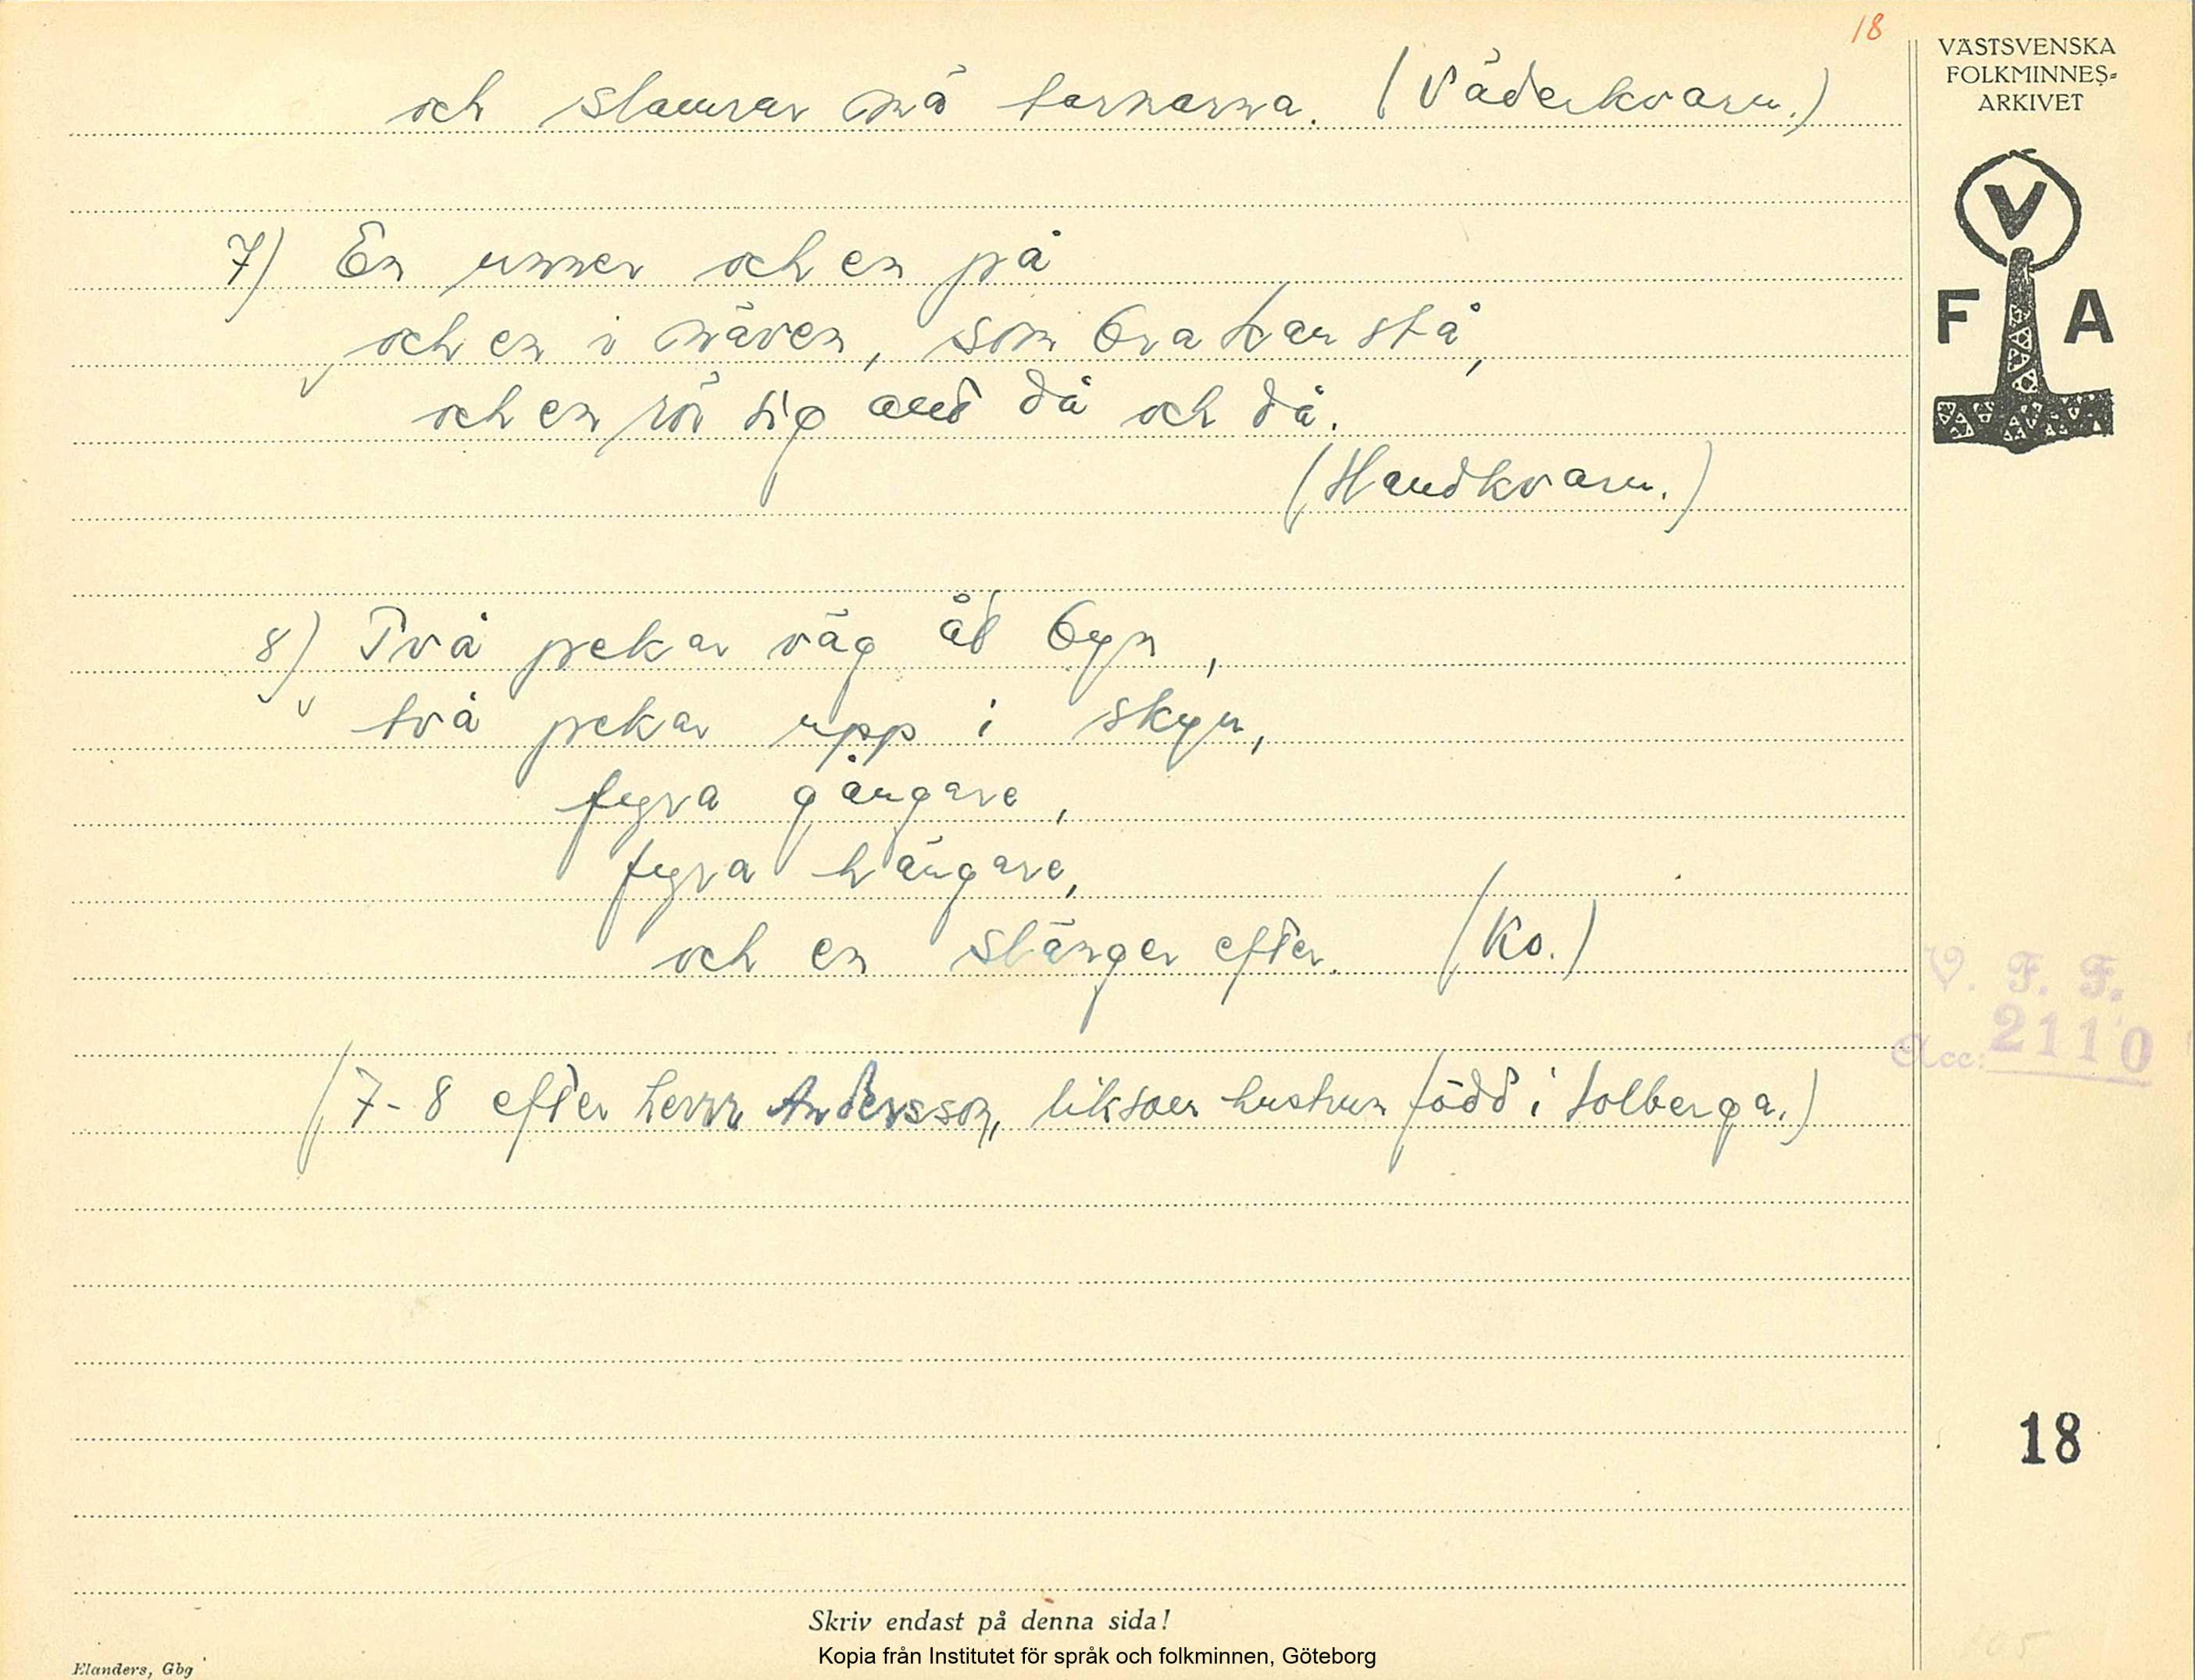 18
och slamrar mä tarnarna. (Väderkvarn.)
7) En unner och en på
och en i näven, som bra kan stå,
och en rör sig and då och då.
(Handkvarn.)
8) Två pekar väg åt byn,
två pekar upp i skyn,
fyra gångare,
fyra hängare,
och en slänger efter. (Ko.)
(7-8 efter herr Andersson, liksom hustrun född i Solberga.)
VÄSTSVENSKA
FOLKMINNES-
ARKIVET
V
F A
V. F. F.
Acc: 2110
18
Skriv endast på denna sida!
Kopia från Institutet för språk och folkminnen, Göteborg
Elanders, Gbg